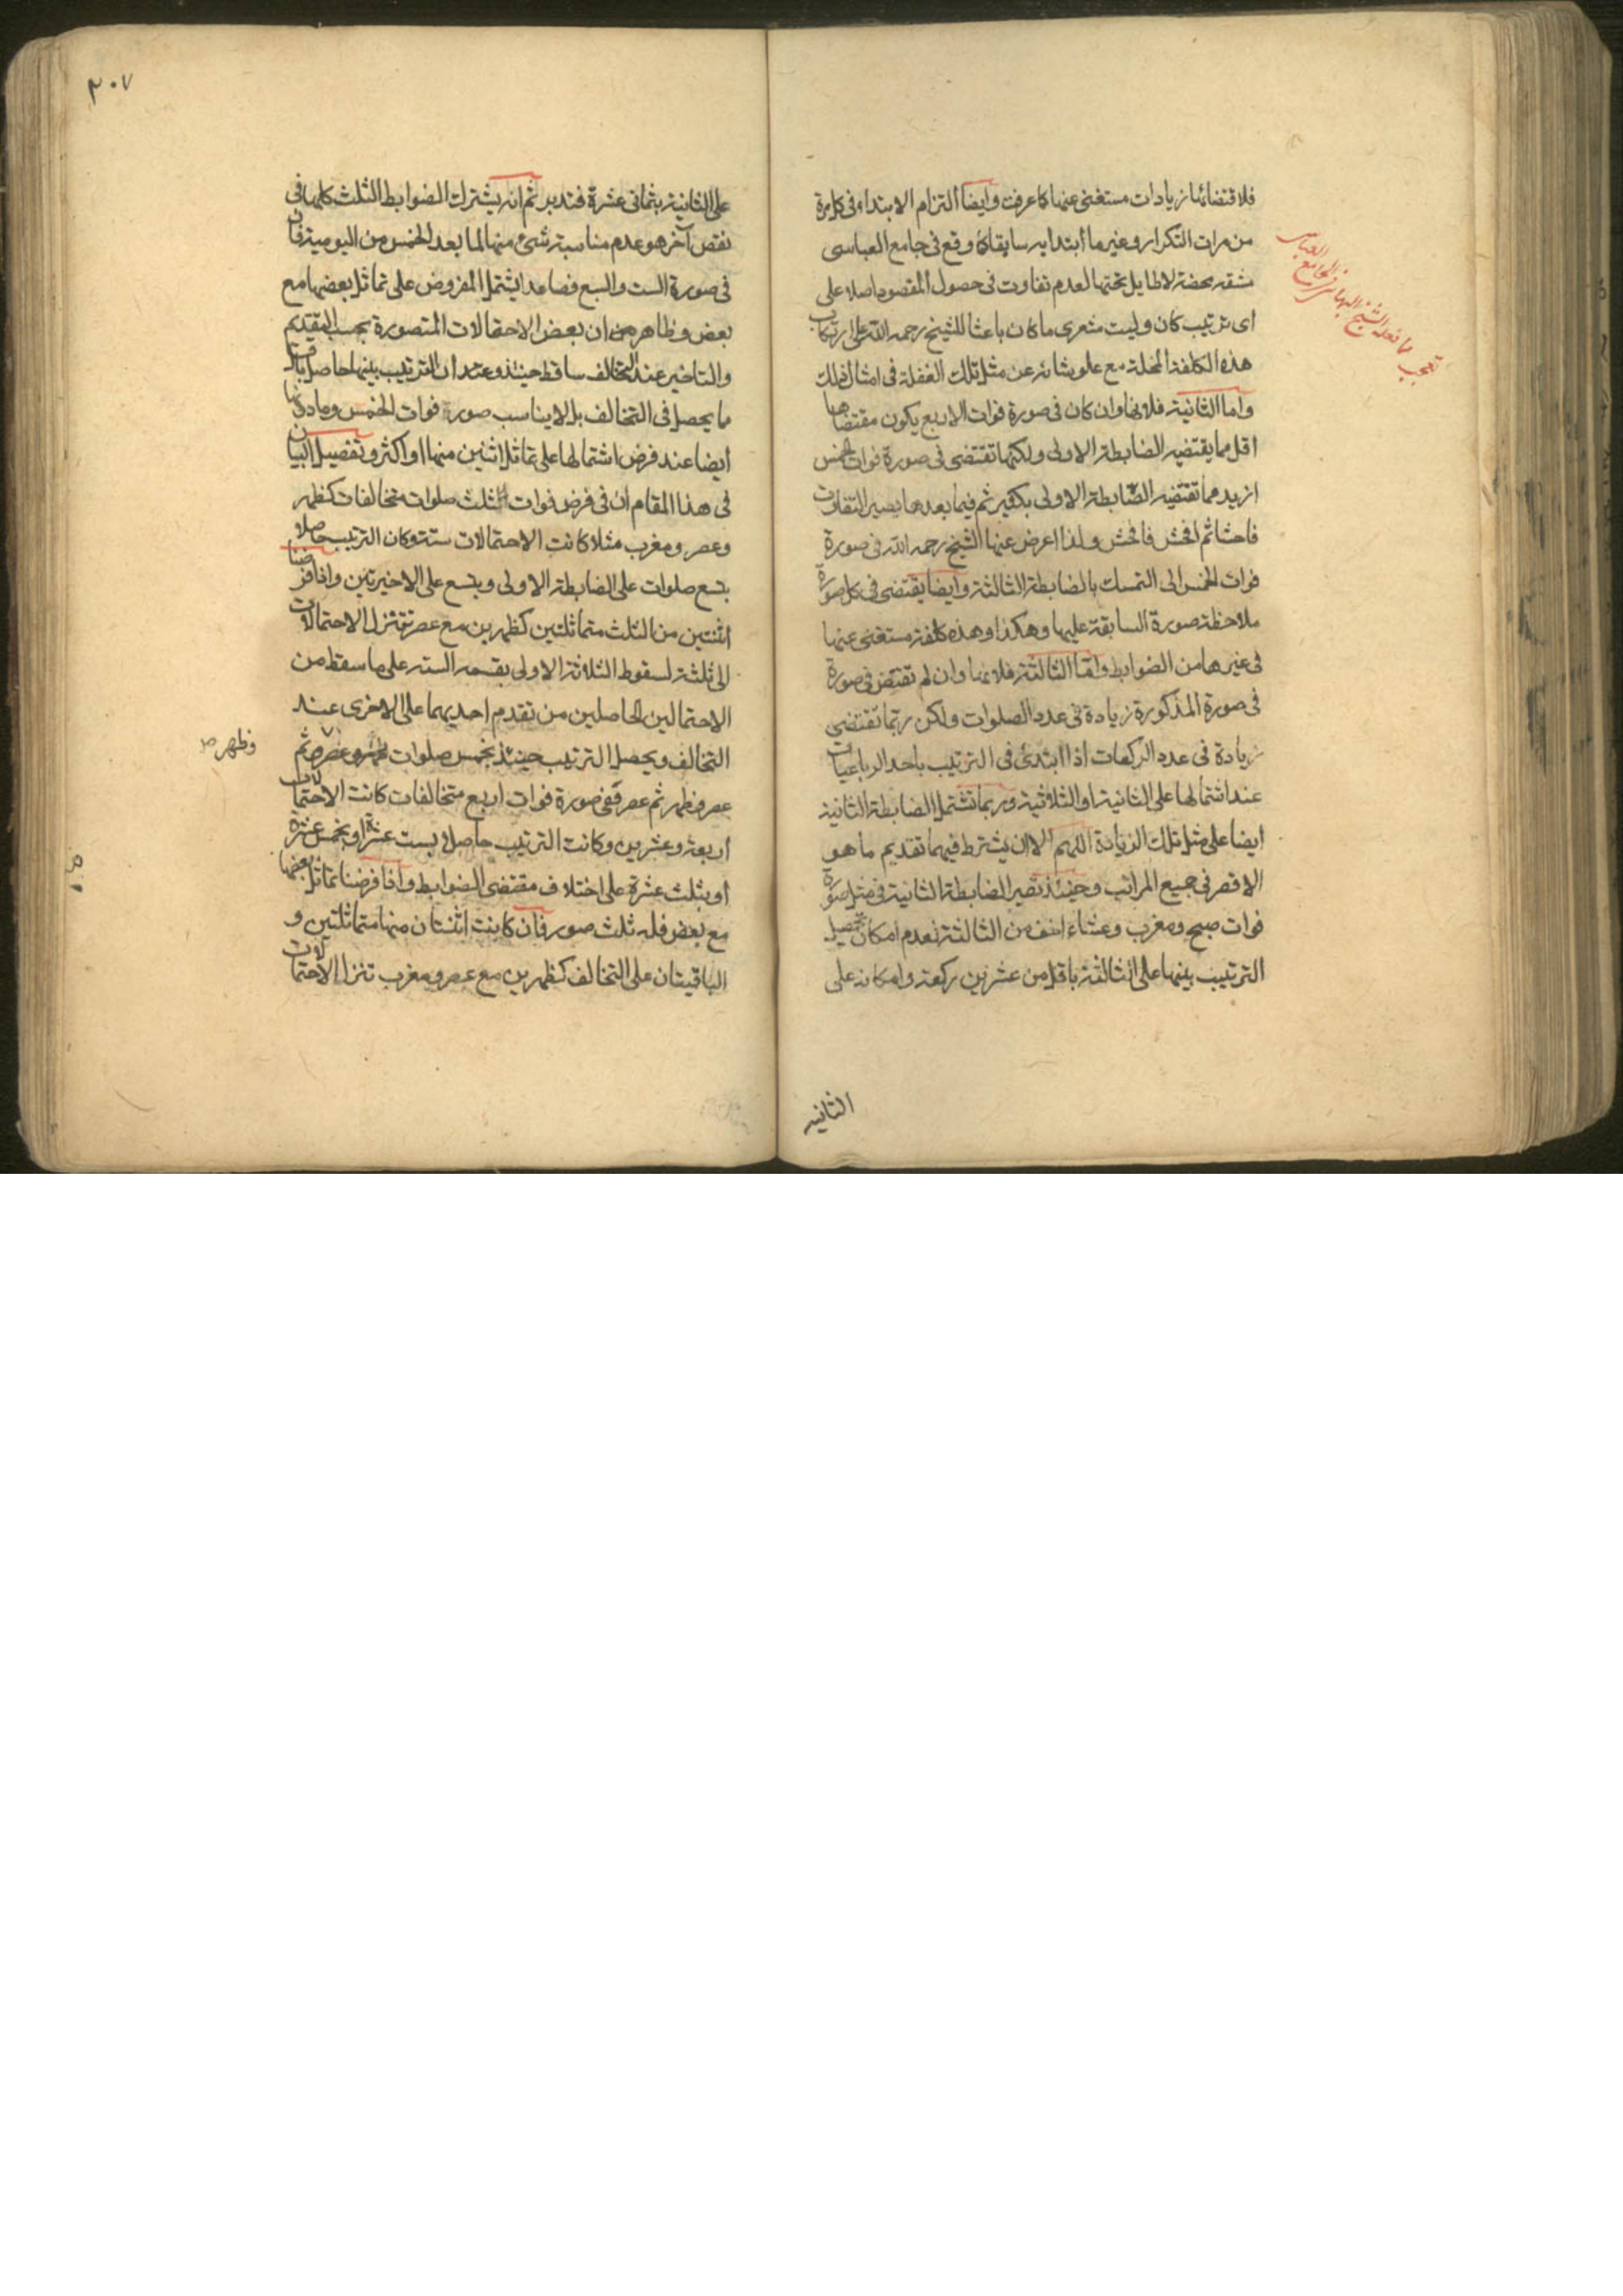 فلاقتضائها زيادات مستغنى عنها كما عرفت وايضا التزام الابتداء في كل مرة
من مرات التكرار وغير ما ابتدا به سابقا كما وقع في جامع العباسي
مشقة محضة لا طايل تحتها لعدم تفاوت في حصول المقصود اصلا على
اى ترتيب كان وليت شعرى ما كان باعثا للشيخ رحمه الله على ارتكاب
هذه الكلفة المخلة مع علو شانه عن مثل تلك الغفلة في امثال ذلك
واما الثانية فلانها وان كان في صورة فوات الاربع يكون مقتضاها
اقل مما يقتضيه الضابطة الاولى ولكنها تقتضى في صورة فوات الخمس
ازيد مما تقتضيه الضابطة الاولى بكثير ثم فيما بعدها يصير التفاوت
فاحشا ثم افحش فافحش ولذا اعرض عنها الشيخ رحمه الله في صورة
فوات الخمس الى التمسك بالضابطة الثالثة وايضا يقتضى في كل صورة
ملاحظة صورة السابقة عليها وهكذا وهذه كلفة مستغنى عنها
في غيرها من الضوابط واما الثالثة فلانها وان لم تقتض في صورة
في صورة المذكورة زيادة في عدد الصلوات ولكن ربما تقتضى
زيادة في عدد الركعات اذا ابتدئ في الترتيب باحد الرباعيات
عند اشتمالها على الثانية او الثلاثية وربما تشتمل الضابطة الثانية
ايضا على مثل تلك الزيادة اللهم الا ان يشترط فيهما تقديم ما هو
الاقصر في جميع المراتب وحينئذ تصير الضابطة الثانية في مثل صورة
فوات صبح ومغرب وعشاء اخف من الثالثة لعدم امكان تحصيل
الترتيب بينها على الثالثة باقل من عشرين ركعة وامكانه على
الثانية
تعجب مما فعله الشيخ البهائى في الجامع العباسي
٣٠٧
على الثانية بثمانى عشرة فتدبر ثم انه يشترك الضوابط الثلث كلها في
نقص آخر هو عدم مناسبة شئ منها لما بعد الخمس من اليومية فان
في صورة الست والسبع فصاعدا يشتمل المفروض على تماثل بعضها مع
بعض وظاهر ان بعض الاحتمالات المتصورة بحسب التقديم
والتاخير عند التخالف ساقط حينئذ وعند ان الترتيب بينها حاصل باقل
ما يحصل في التخالف بل لا يناسب صورة فوات الخمس وما دونها
ايضا عند فرض اشتمالها على تماثل اثنين منها او اكثر وتفصيل البيان
في هذا المقام ان في فرض فوات ثلث صلوات متخالفات كظهر
وعصر ومغرب مثلا كانت الاحتمالات ستة وكان الترتيب حاصلا
بتسع صلوات على الضابطة الاولى وبتسع على الاخيرتين واذا فرضنا
اثنتين من الثلث متماثلتين كظهرين مع عصر تتنزل الاحتمالات
الى ثلثة لسقوط الثلاثة الاولى بقسمة الستة على ما سقط من
الاحتمالين الحاصلين من تقدم احديهما على الاخرى عند
التخالف ويحصل الترتيب حينئذ بخمس صلوات ثم
وظهر ص
عصر فظهر ثم عصر ففي صورة فوات اربع متخالفات كانت الاحتمالات
اربعة وعشرين وكانت الترتيب حاصلا بست عشرة او بخمس عشرة
او بثلث عشرة على اختلاف مقتضى الضوابط واذا فرضنا تماثل بعضها
مع بعض فله ثلث صور فان كانت اثنتان منها متماثلتين و
الباقيتان على التخالف كظهرين مع عصر ومغرب تنزل الاحتمالات